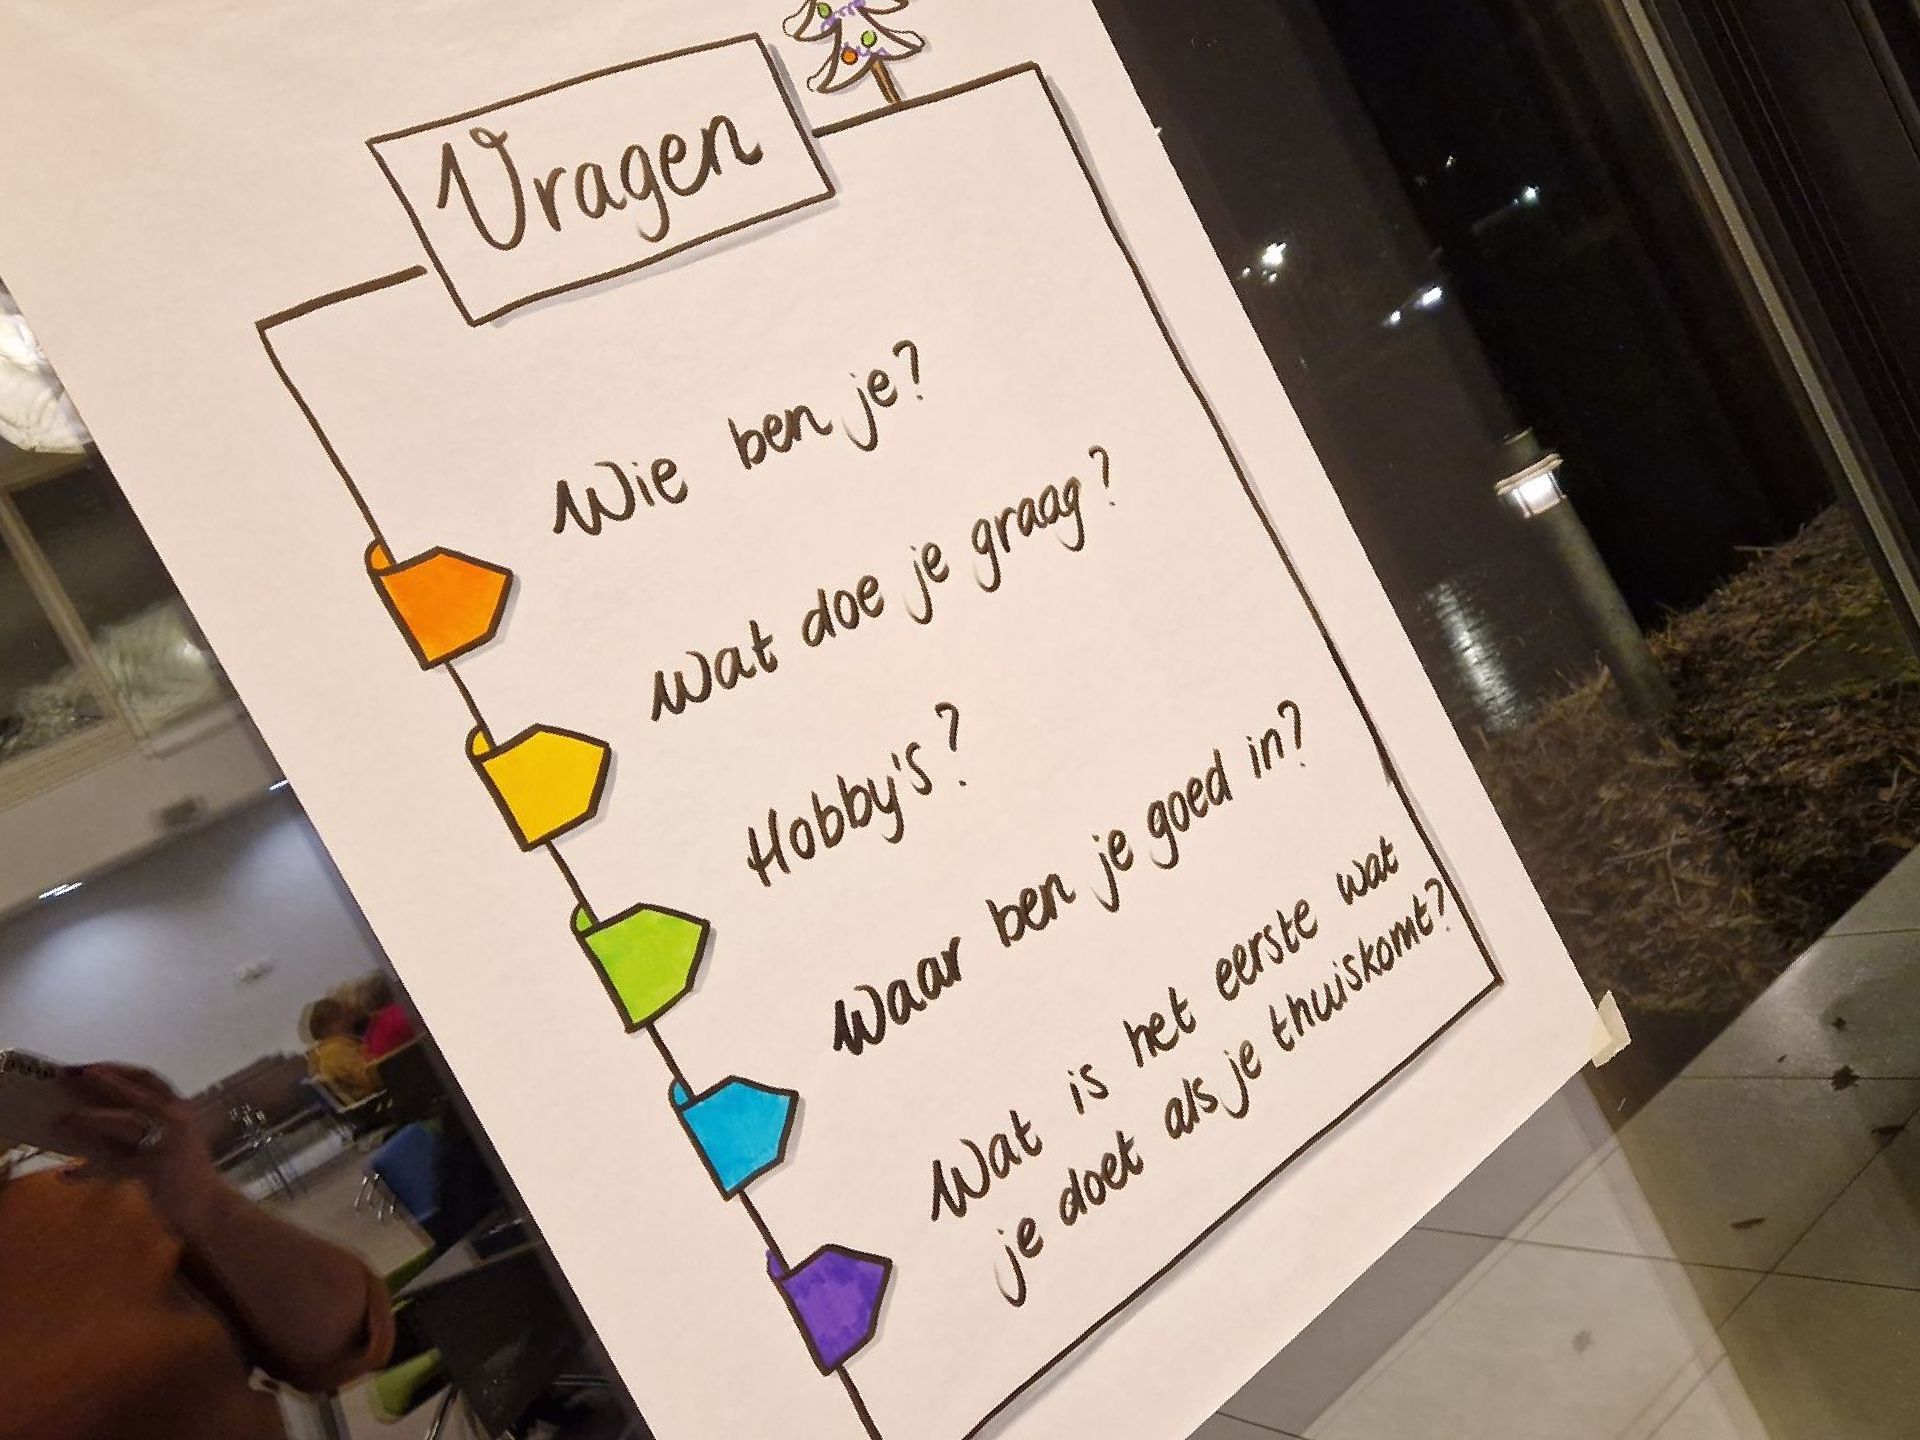 Vragen
Wie ben je?
Wat doe je graag?
Hobby's?
Waar ben je goed in?
Wat is het eerste wat
je doet als je thuiskomt?